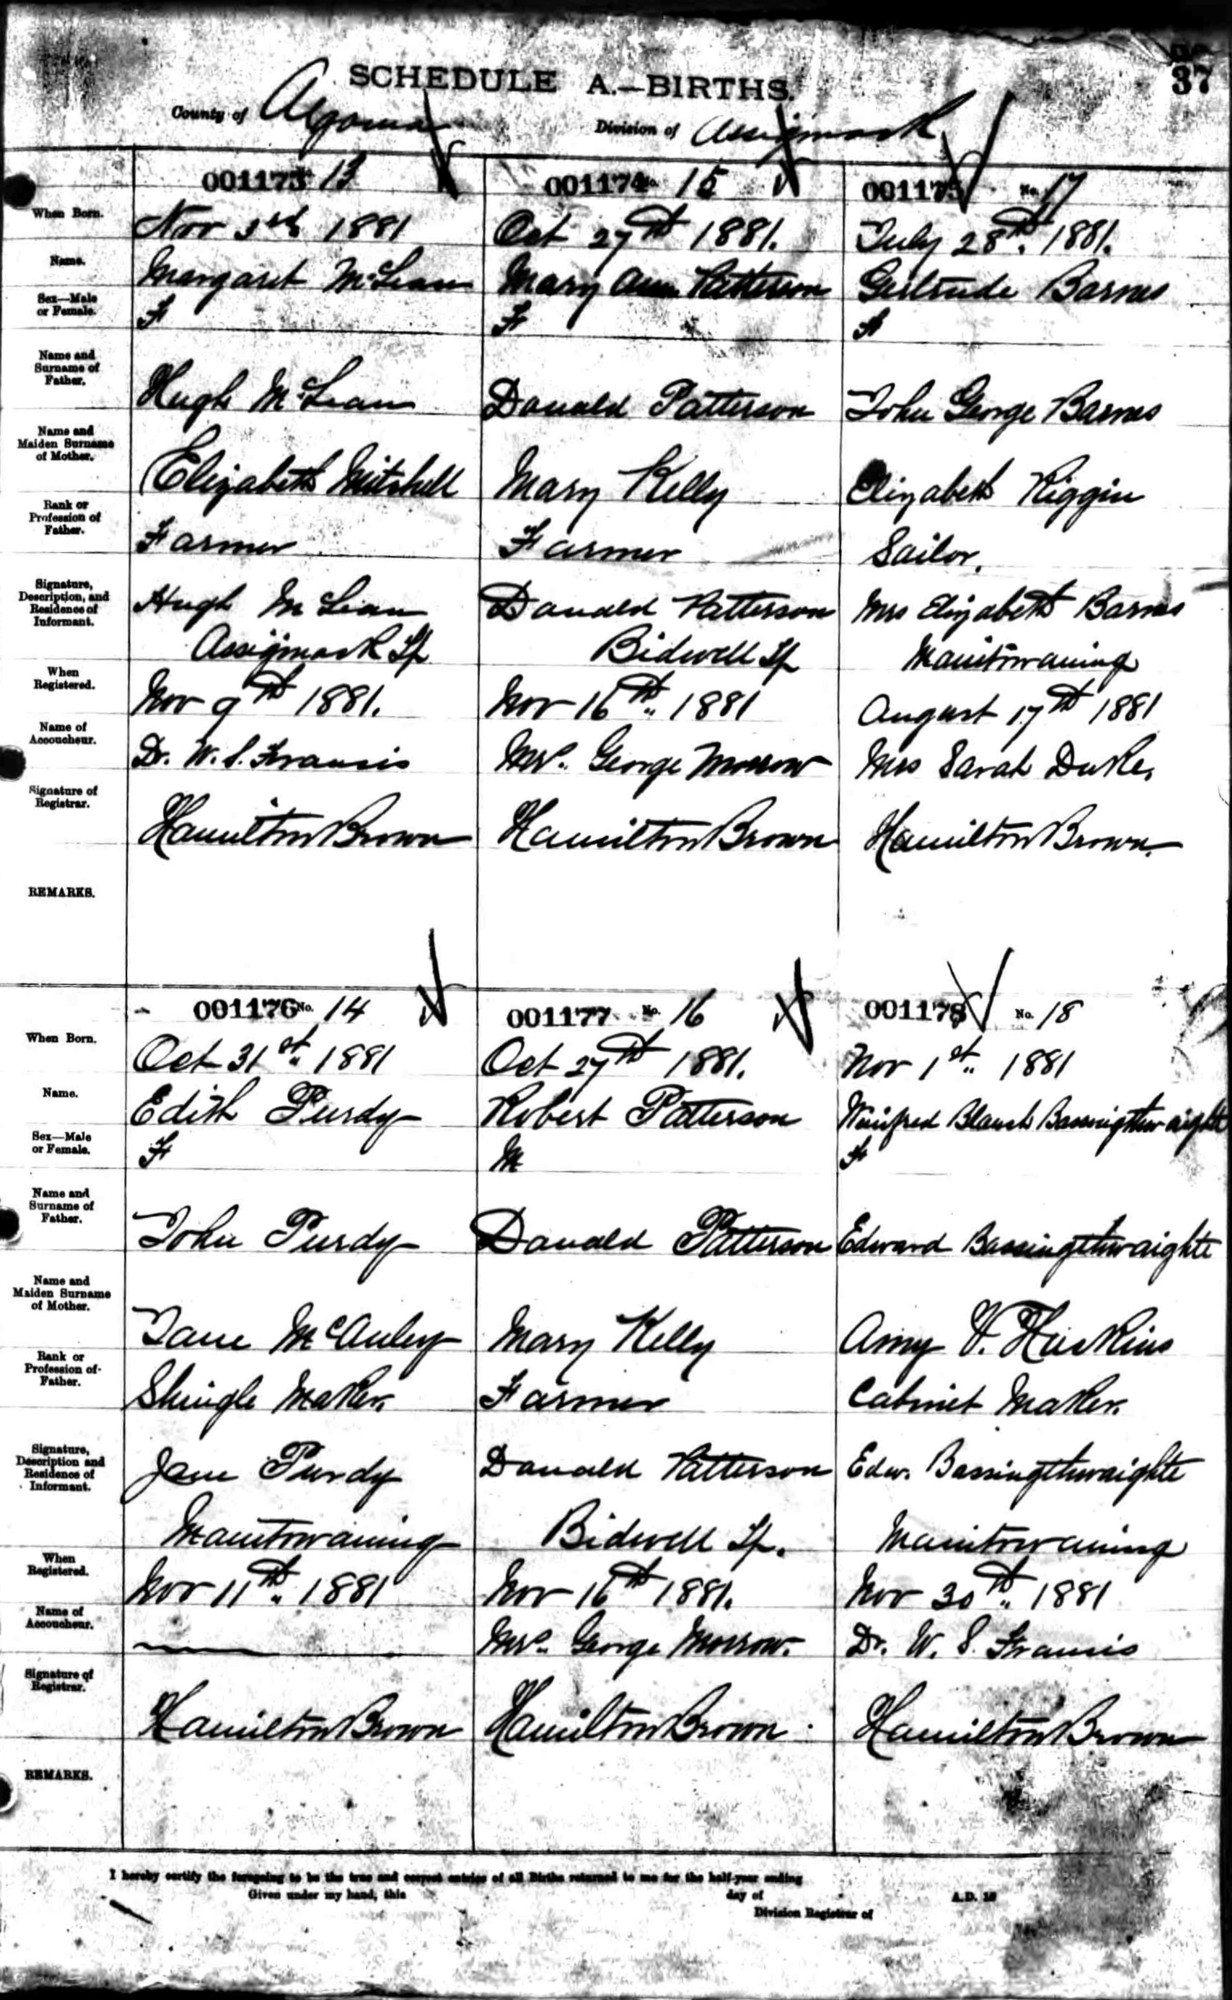 37
SCHEDULE A.—BIRTHS.
County of Algoma Division of Assiginack
001173 13
001174 No. 15
001175 No. 17
When Born.
Nov 3rd 1881
Oct 27th 1881.
July 28th. 1881.
Name.
Margaret McLean
Mary Ann Patterson
Gertrude Barnes
Sex—Male
or Female.
F
F
F
Name and
Surname of
Father.
Hugh McLean
Donald Patterson
John George Barnes
Name and
Maiden Surname
of Mother.
Elizabeth Mitchell
Mary Kelly
Elizabeth Higgin
Rank or
Profession of
Father.
Farmer
Farmer
Sailor.
Signature,
Description, and
Residence of
Informant.
Hugh McLean
Assiginack Tp
Donald Patterson
Bidwell Tp
Mrs Elizabeth Barnes
Manitowaning
When
Registered.
Nov 9th 1881.
Nov 16th. 1881
August 17th 1881
Name of
Accoucheur.
Dr. W. S. Francis
Mrs. George Morrow
Mrs Sarah Duke.
Signature of
Registrar.
Hamilton Brown
Hamilton Brown
Hamilton Brown.
REMARKS.
001176 No. 14
001177 No. 16
001178 No. 18
When Born.
Oct 31st. 1881
Oct 27th 1881.
Nov 1st. 1881
Name.
Edith Purdy
Robert Patterson
Winifred Blanch Bassingthwaighte
Sex—Male
or Female.
F
M
F
Name and
Surname of
Father.
John Purdy
Donald Patterson
Edward Bassingthwaighte
Name and
Maiden Surname
of Mother.
Jane McAuley
Mary Kelly
Amy V. Huskins
Rank or
Profession of
Father.
Shingle Maker.
Farmer
Cabinet Maker.
Signature,
Description and
Residence of
Informant.
Jane Purdy
Manitowaning
Donald Patterson
Bidwell Tp.
Edw. Bassingthwaighte
Manitowaning
When
Registered.
Nov 11th. 1881
Nov 16th 1881.
Nov 30th. 1881
Name of
Accoucheur.
Mrs. George Morrow.
Dr. W. S. Francis
Signature of
Registrar.
Hamilton Brown
Hamilton Brown.
Hamilton Brown
REMARKS.
I hereby certify the foregoing to be the true and correct entries of all Births returned to me for the half-year ending
Given under my hand, this day of A.D. 18
Division Registrar of